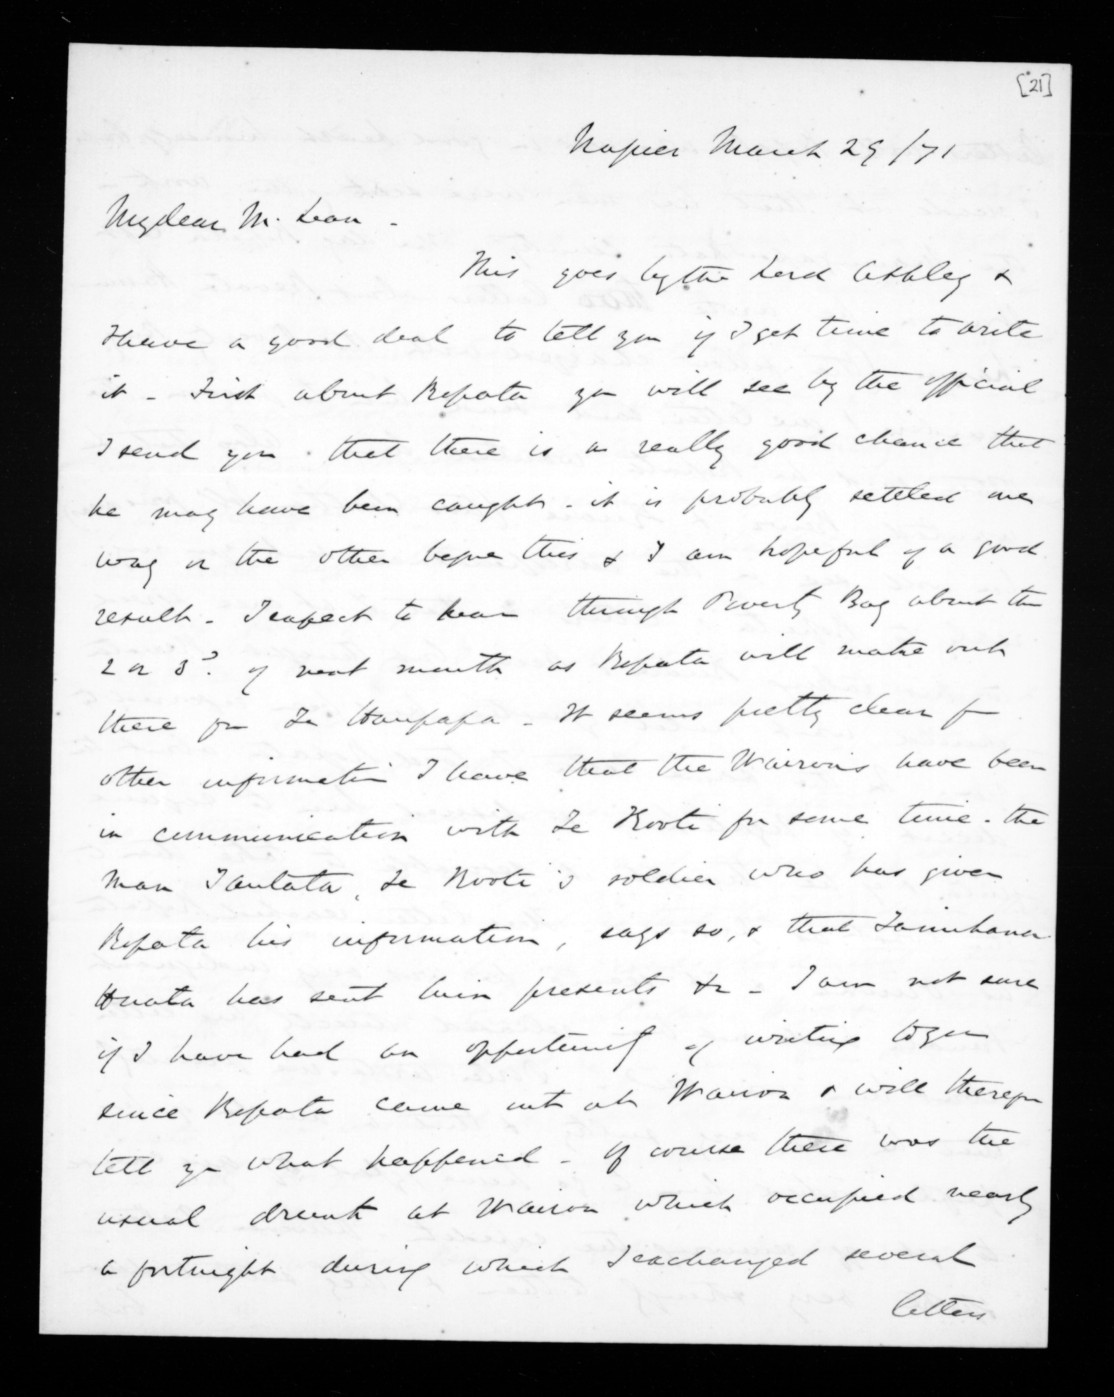 [21]
Napier March 29/71
My dear McLean -
This goes by the Lord Ashley &
I have a good deal to tell you if I get time to write
it - First about Ropata you will see by the official
I send you that there is a really good chance that
he may have been caught - it is probably settled one
way or the other before this & I am hopeful of a good
result - I expect to hear through Poverty Bay about the
2 or 3d. of next month as Ropata will make out
there for Te Haupapa - It seems pretty clear fm
other information I have that the Wairoas have been
in communication with Te Kooti for some time - the
man Tautata, Te Kooti's soldier who has given
Ropata his information, says so, & that Tamihana
Huata has sent him presents &c - I am not sure
if I have had an opportunity of writing to you
since Ropata came out at Wairoa & will therefore
tell you what happened - Of course there was the
usual drunk at Wairoa which occupied nearly
a fortnight during which I exchanged several
letters